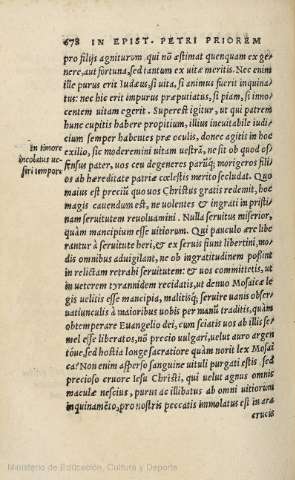 678 IN EPIST. PETRI PRIOREM
pro filijs agniturum qui nõ æstimat quenquam ex ge-
nere, aut fortuna, sed tantum ex uitæ meritis. Nec enim
ille purus erit Iudæus, si uita, si animus fuerit inquina-
tus: nec hic erit impurus præputiatus, si piam, si inno-
centem uitam egerit. Superest igitur, ut qui patrem
hunc cupitis habere propitium, illius ineuitabile iudi-
cium semper habentes præ oculis, donec agitis in hoc
In timore
incolatus ue-
stri tempore
exilio, sic moderemini uitam uestrã, ne sit ob quod of-
fensus pater, uos ceu degeneres parũq; morigeros fili-
os ab hæreditate patriæ cœlestis merito secludat. Quo
maius est preciũ quo uos Christus gratis redemit, hoc
magis cauendum est, ne uolentes & ingrati in pristi-
nam seruitutem reuoluamini. Nulla seruitus miserior,
quàm mancipium esse uitiorum. Qui paculo ære libe
rantur à seruitute heri, & ex seruis fiunt libertini, mo-
dis omnibus aduigilant, ne ob ingratitudinem possint
in relictam retrahi seruitutem: & uos committetis, ut
in ueterem tyrannidem recidatis, ut denuo Mosaicæ le
gis uelitis esse mancipia, malitisq; seruire uanis obser-
uatiunculis à maioribus uobis per manũ traditis, quàm
obtemperare Euangelio dei, cum sciatis uos ab illis se-
mel esse liberatos, nõ precio uulgari, uelut auro argen
tóue, sed hostia longe sacratiore quàm norit lex Mosai
ca? Non enim asperso sanguine uituli purgati estis, sed
precioso cruore Iesu Christi, qui uelut agnus omnis
maculæ nescius, purus ac illibatus ab omni uitiorum
inquinamẽto, pro nostris peccatis immolatus est in ara
crucis
Ministerio de Educación, Cultura y Deporte